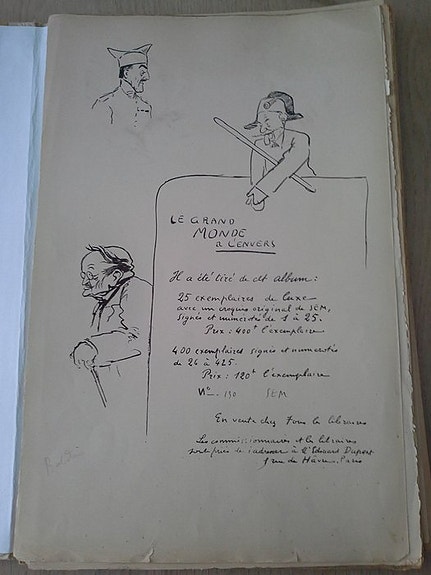 LE GRAND
MONDE
A L'ENVERS
Il a été tiré de cet album :
25 exemplaires de luxe
avec un croquis original de SEM,
signés et numérotés de 1 à 25.
Prix : 400f l'exemplaire
400 exemplaires signés et numérotés
de 26 à 425.
Prix : 120f l'exemplaire
No - 190 SEM
En vente chez Tous les libraires
Les commissionnaires et les libraires
sont priés de s'adresser à l'Edouard Dupont
rue de Hâvre, Paris